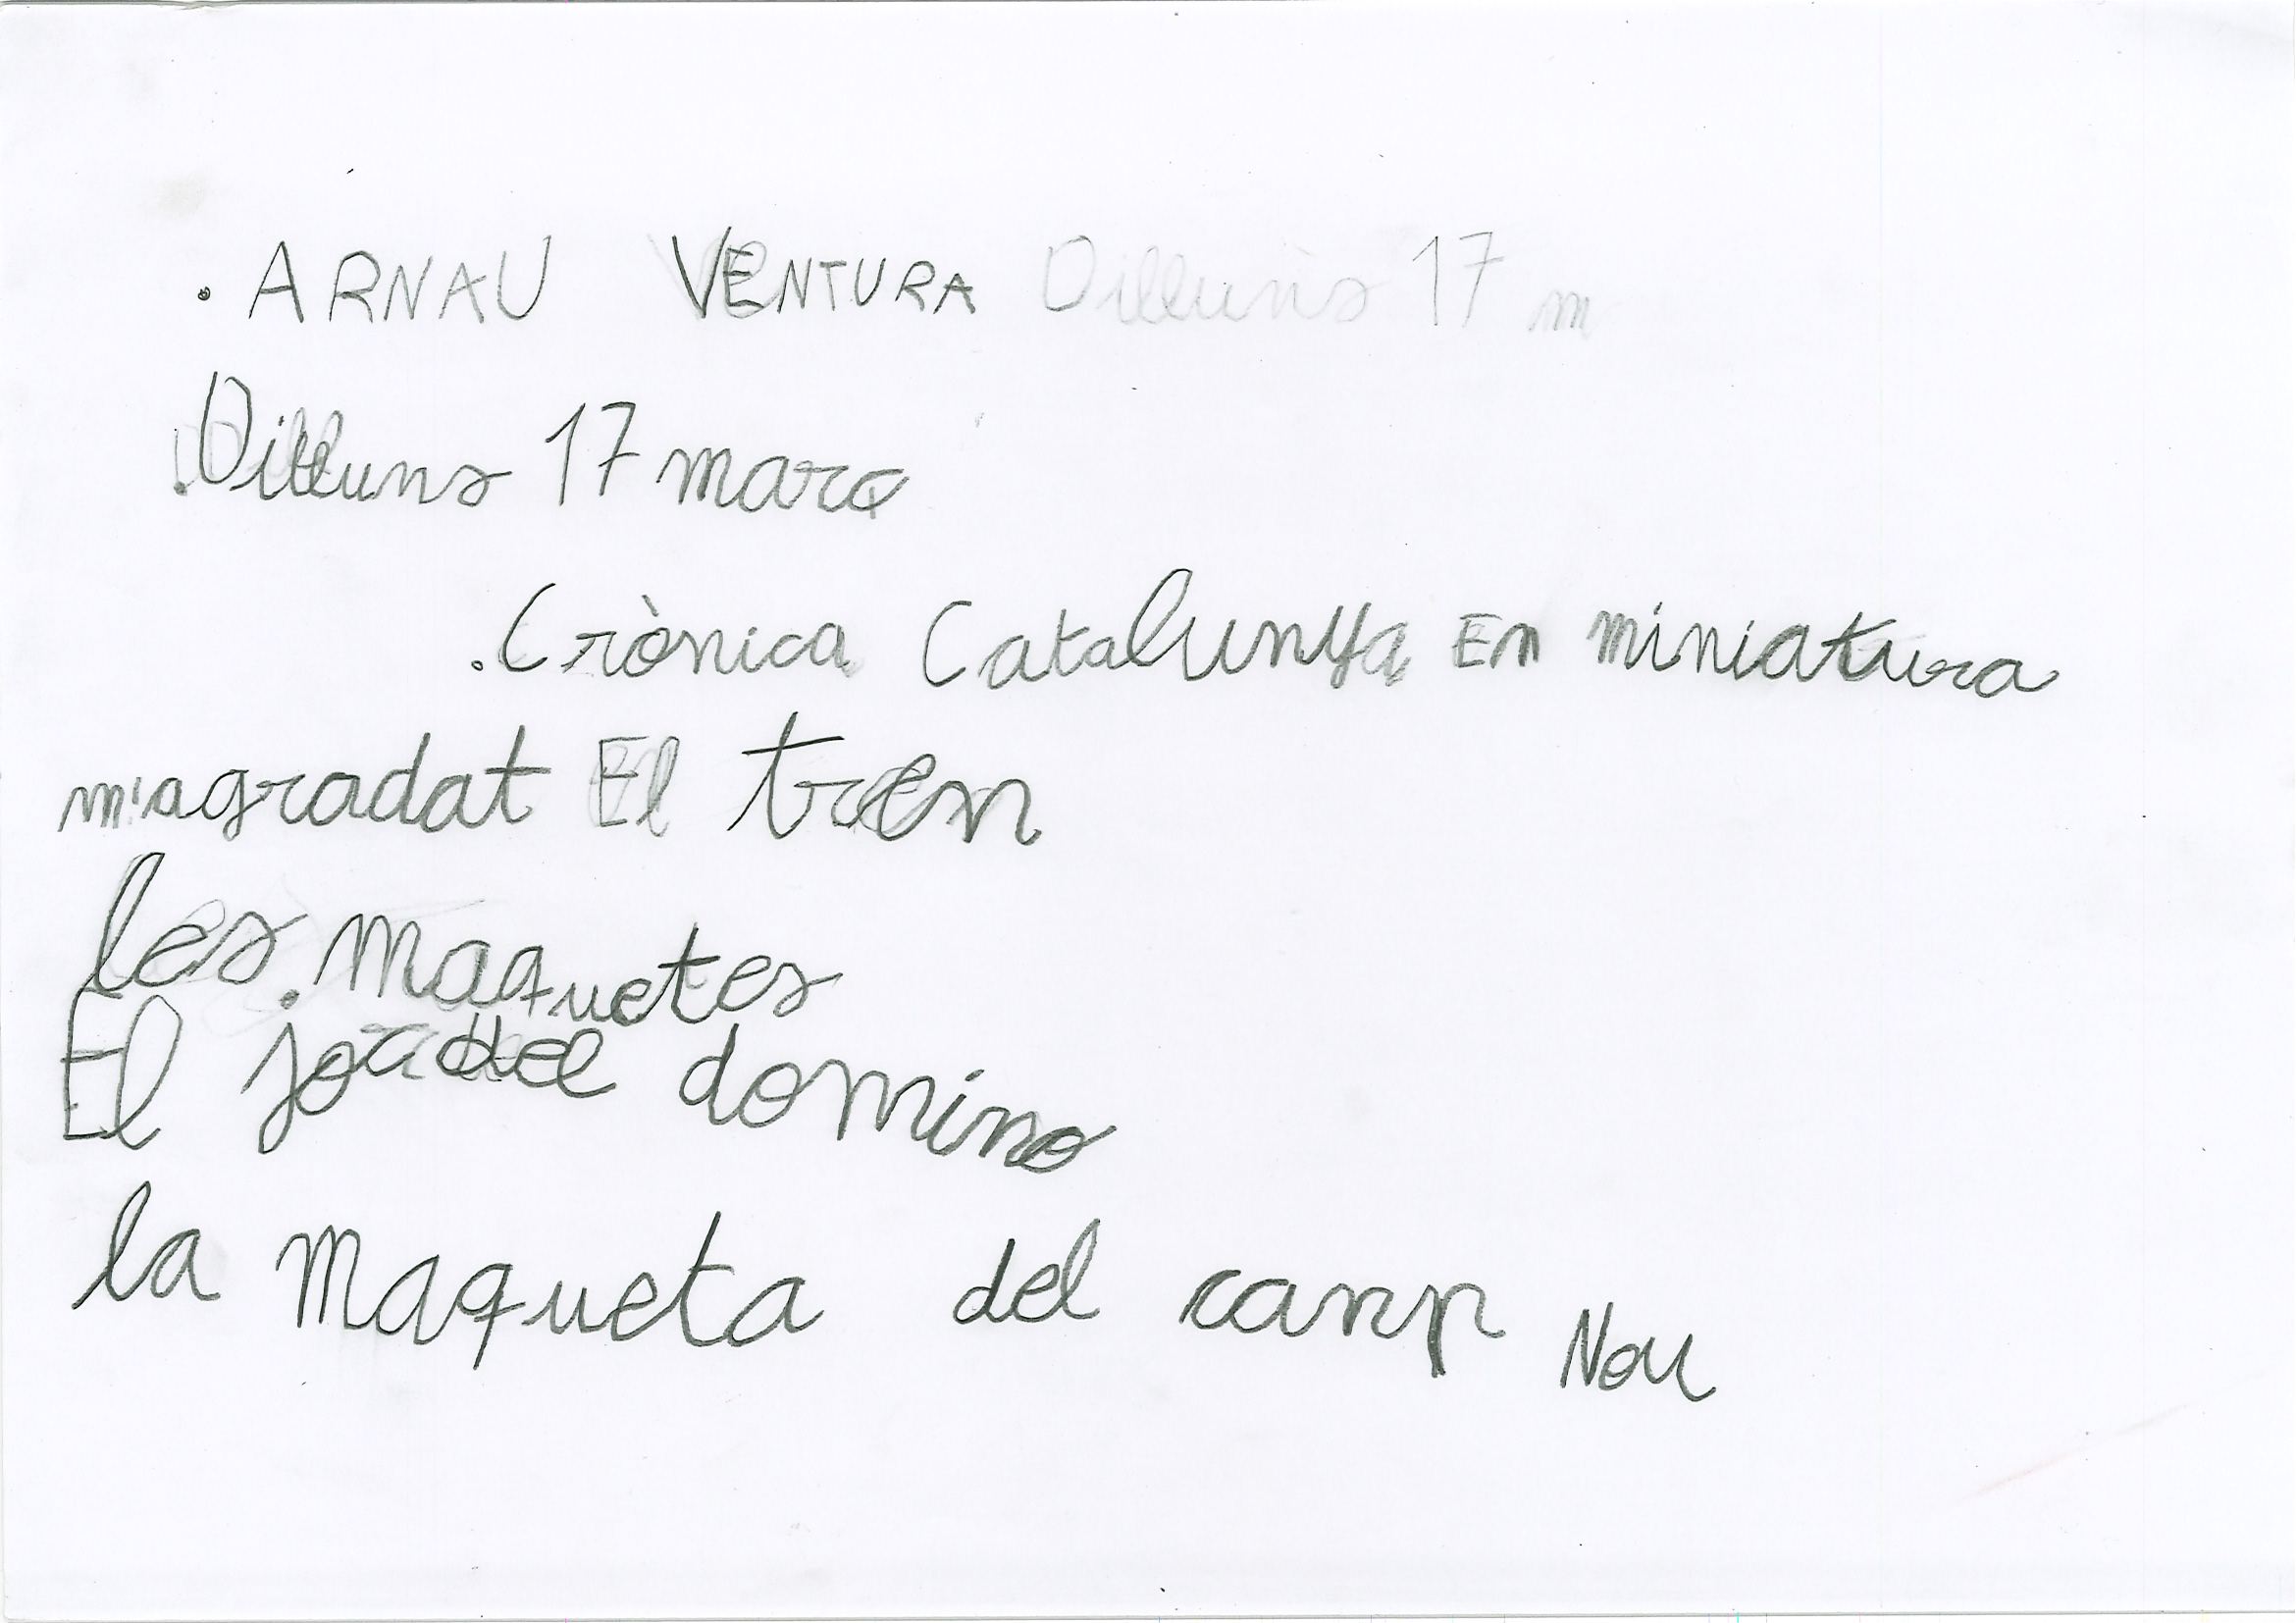 . ARNAU VENTURA Dilluns 17 m
.Dilluns 17 març
.Crònica Catalunya En miniatura
m'agradat El tren
les maquetes
El joc del domino
la Maqueta del camp Nou